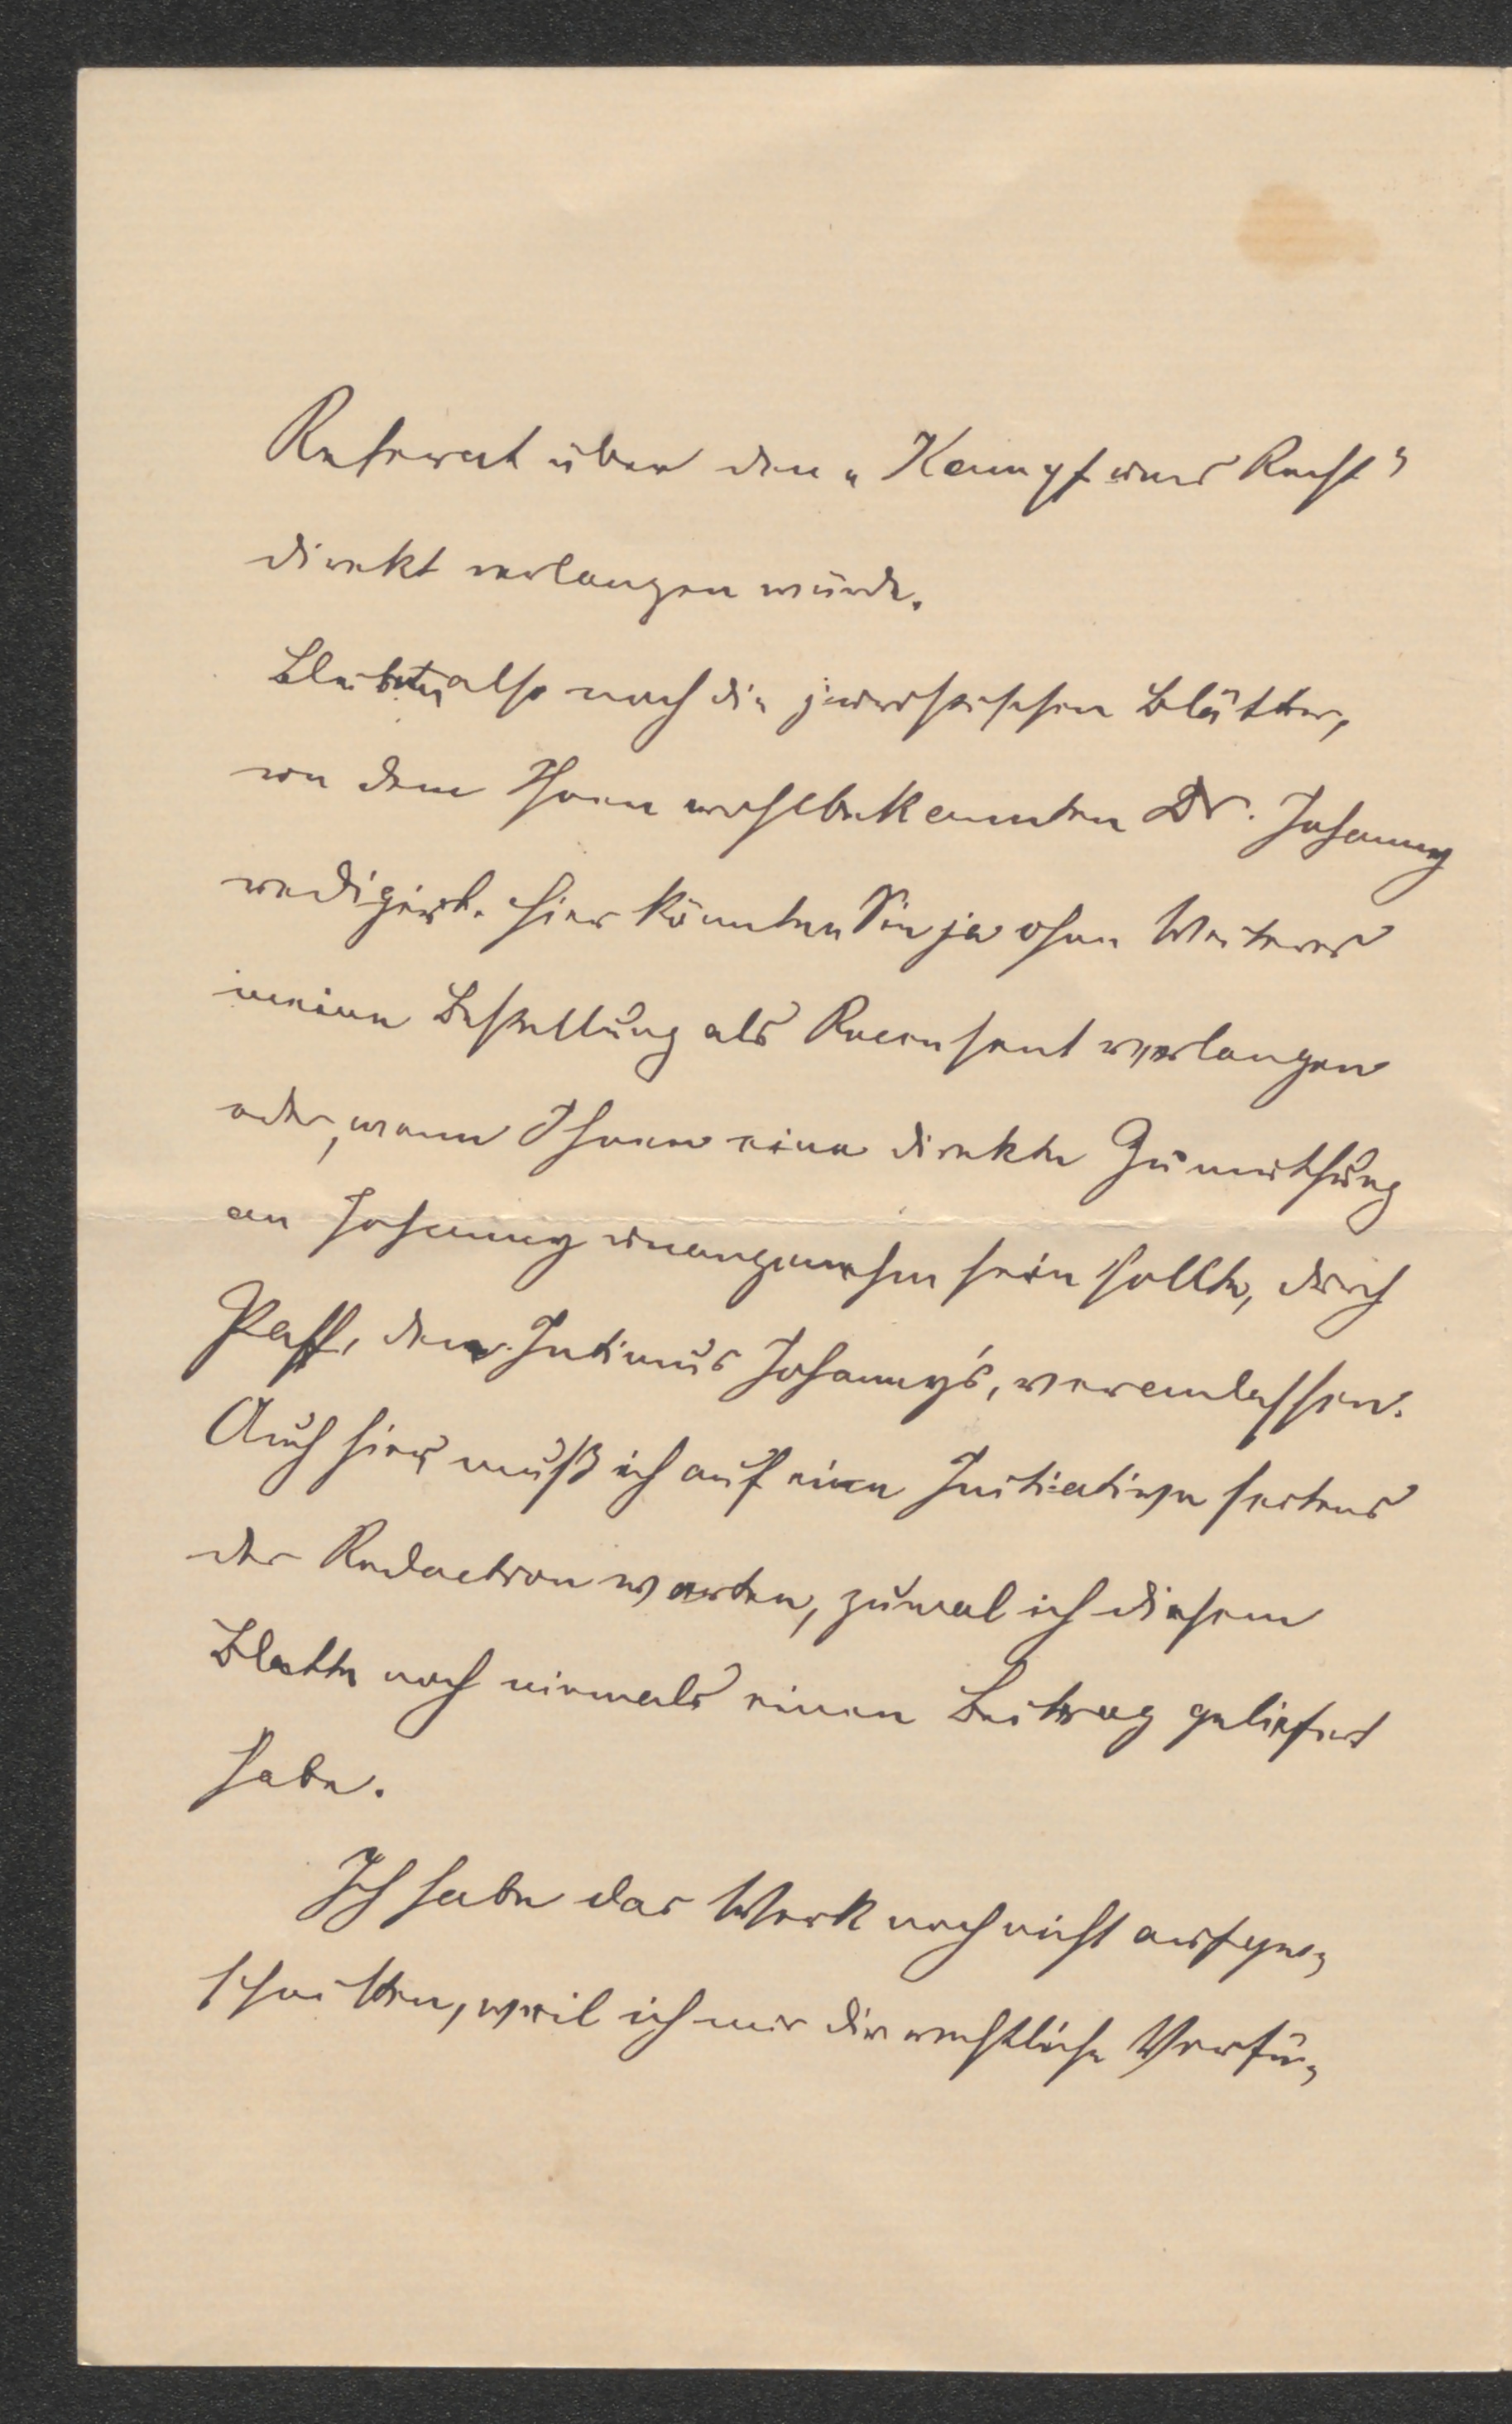 Referat über den „Kampf ums Recht"
direkt verlangen würde.
Bleiben also noch die juristischen Blätter,
von dem Ihnen wohlbekannten Dr. Johanny
redigirt. Hier könnten Sie ja ohne Weiteres
meine Bestellung als Recensent verlangen
oder, wenn Ihnen eine direkte Zumuthung
an Johanny unangenehm sein sollte, durch
Pfaff, den Intimus Johanny's, veranlassen.
Auch hier muß ich auf eine Initiative seitens
der Redaction warten, zumal ich diesem
Blatte noch niemals einen Beitrag geliefert
habe.
Ich habe das Werk noch nicht aufge-
schnitten, weil ich mir die rechtliche Verfü-